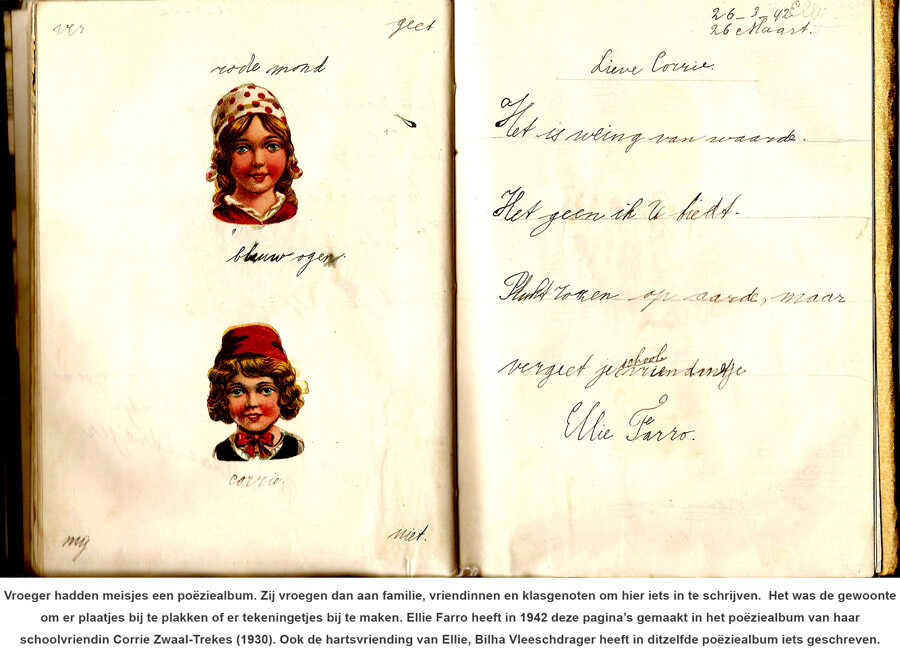 ver geet
rode mond
blauw ogen.
corrie.
mij niet.
26-3-42
26 Maart.
Lieve Corrie.
Het is weing van waarde.
Het geen ik U biedt.
Plukt rozen op aarde, maar
vergeet je schoolvriendinetje
Ellie Farro.
Vroeger hadden meisjes een poëziealbum. Zij vroegen dan aan familie, vriendinnen en klasgenoten om hier iets in te schrijven. Het was de gewoonte
om er plaatjes bij te plakken of er tekeningetjes bij te maken. Ellie Farro heeft in 1942 deze pagina's gemaakt in het poëziealbum van haar
schoolvriendin Corrie Zwaal-Trekes (1930). Ook de hartsvriending van Ellie, Bilha Vleeschdrager heeft in ditzelfde poëziealbum iets geschreven.